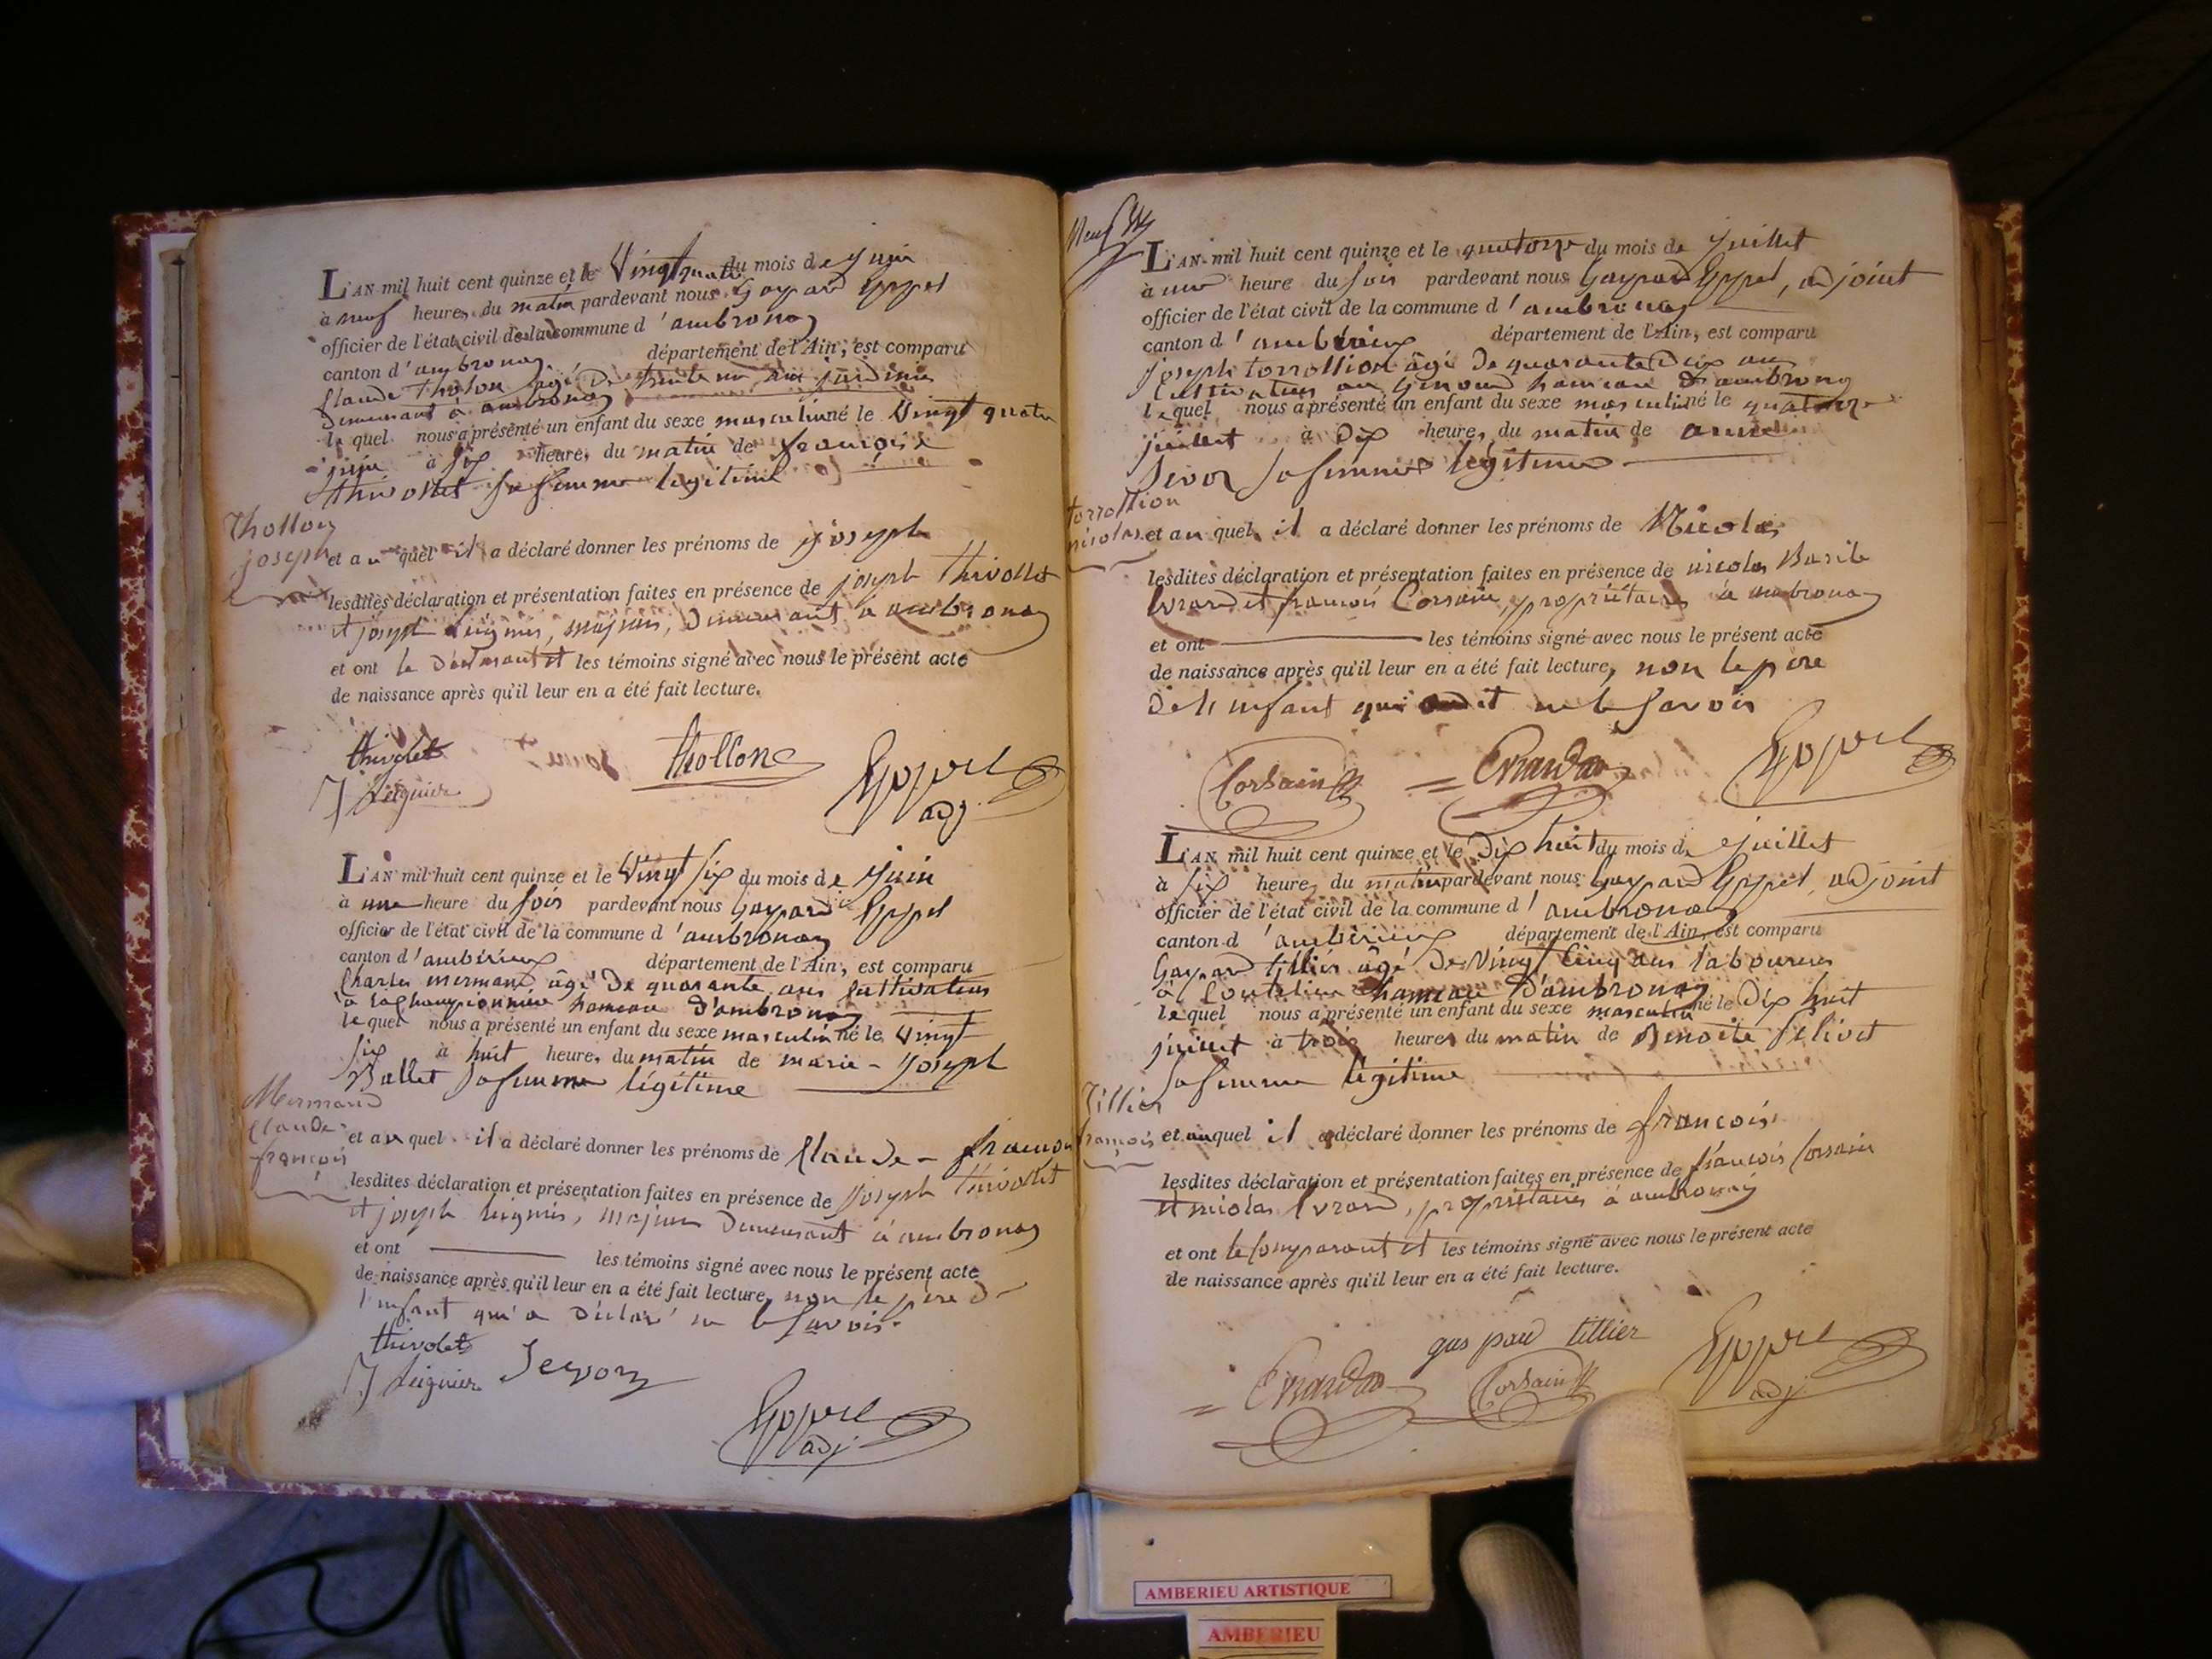 L'AN mil huit cent quinze et le Vingt quatre du mois de juin
à neuf heures du matin pardevant nous Gaspard Eppel
officier de l'état civil de la commune d'ambronay
canton d'ambronay département de l'Ain, est comparu
Claude thollon âgé de trente un ans jardinier
demeurant à ambronay
lequel nous a présenté un enfant du sexe masculin né le Vingt quatre
juin à six heures du matin de françoise
thivollet sa femme légitime
Thollon
joseph
et auquel il a déclaré donner les prénoms de joseph
lesdites déclaration et présentation faites en présence de joseph thivollet
et joseph Leignier, majeurs, demeurant à ambronay
et ont le déclarant et les témoins signé avec nous le présent acte
de naissance après qu'il leur en a été fait lecture.
thivolet thollon Eppel
J Leignier adj.
L'AN mil huit cent quinze et le Vingt six du mois de juin
à une heure du soir pardevant nous Gaspard Eppel
officier de l'état civil de la commune d'ambronay
canton d'ambérieux département de l'Ain, est comparu
Charles mermand âgé de quarante ans cultivateur
à la championnière hameau d'ambronay
lequel nous a présenté un enfant du sexe masculin né le Vingt
six à huit heures du matin de marie-joseph
Ballet sa femme légitime
Mermand
Claude
françois
et auquel il a déclaré donner les prénoms de Claude-françois
lesdites déclaration et présentation faites en présence de joseph thivollet
et joseph Leignier, majeurs demeurant à ambronay
et ont les témoins signé avec nous le présent acte
de naissance après qu'il leur en a été fait lecture, non le père de
l'enfant qui a déclaré ne le savoir.
thivolet
J Leignier Eppel
adj.
Neuf
L'AN mil huit cent quinze et le quatorze du mois de juillet
à une heure du soir pardevant nous Gaspard Eppel, adjoint
officier de l'état civil de la commune d'ambronay
canton d'ambérieux département de l'Ain, est comparu
joseph torrollion âgé de quarante dix ans
cultivateur au Genoud hameau d'ambronay
lequel nous a présenté un enfant du sexe masculin né le quatorze
juillet à dix heures du matin de anne
sa femme légitime
torrollion
nicolas
et auquel il a déclaré donner les prénoms de Nicolas
lesdites déclaration et présentation faites en présence de nicolas Basile
Evrard et françois Corsain, propriétaires à ambronay
et ont les témoins signé avec nous le présent acte
de naissance après qu'il leur en a été fait lecture, non le père
de l'enfant qui a dit ne le savoir
Corsain Evrard Eppel
L'AN mil huit cent quinze et le Dix huit du mois de juillet
à six heures du matin pardevant nous Gaspard Eppel, adjoint
officier de l'état civil de la commune d'ambronay
canton d'ambérieux département de l'Ain, est comparu
Gaspard tillier âgé de Vingt cinq ans laboureur
à Coutelieu hameau d'ambronay
lequel nous a présenté un enfant du sexe masculin né le Dix huit
juillet à trois heures du matin de Benoite Pelivet
sa femme légitime
Tillier
françois
et auquel il a déclaré donner les prénoms de françois
lesdites déclaration et présentation faites en présence de françois Corsain
et nicolas Evrard, propriétaires à ambronay
et ont le comparant et les témoins signé avec nous le présent acte
de naissance après qu'il leur en a été fait lecture.
gaspard tillier
Evrard Corsain Eppel
adj.
AMBERIEU ARTISTIQUE
AMBERIEU